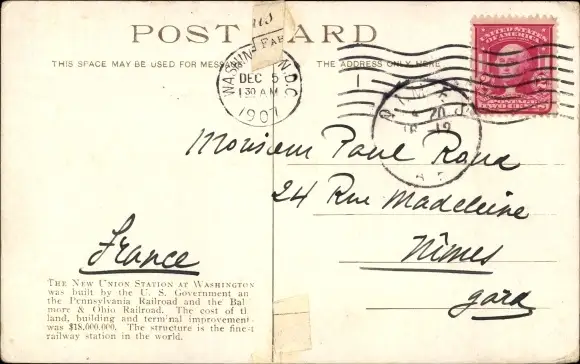 POST CARD
THIS SPACE MAY BE USED FOR
THE ADDRESS ONLY HERE
WASHIN N.D.C.
DEC 5
1 30 AM
1907
UNITED STATES
OF AMERICA
POSTAGE
TWO CENTS
Monsieur Paul
24 Rue Madeleine
Nîmes
Gard
France
THE NEW UNION STATION AT WASHINGTON
was built by the U. S. Government an
the Pennsylvania Railroad and the Bal
more & Ohio Railroad. The cost of th
land, building and terminal improvement
was $18,000,000. The structure is the finest
railway station in the world.